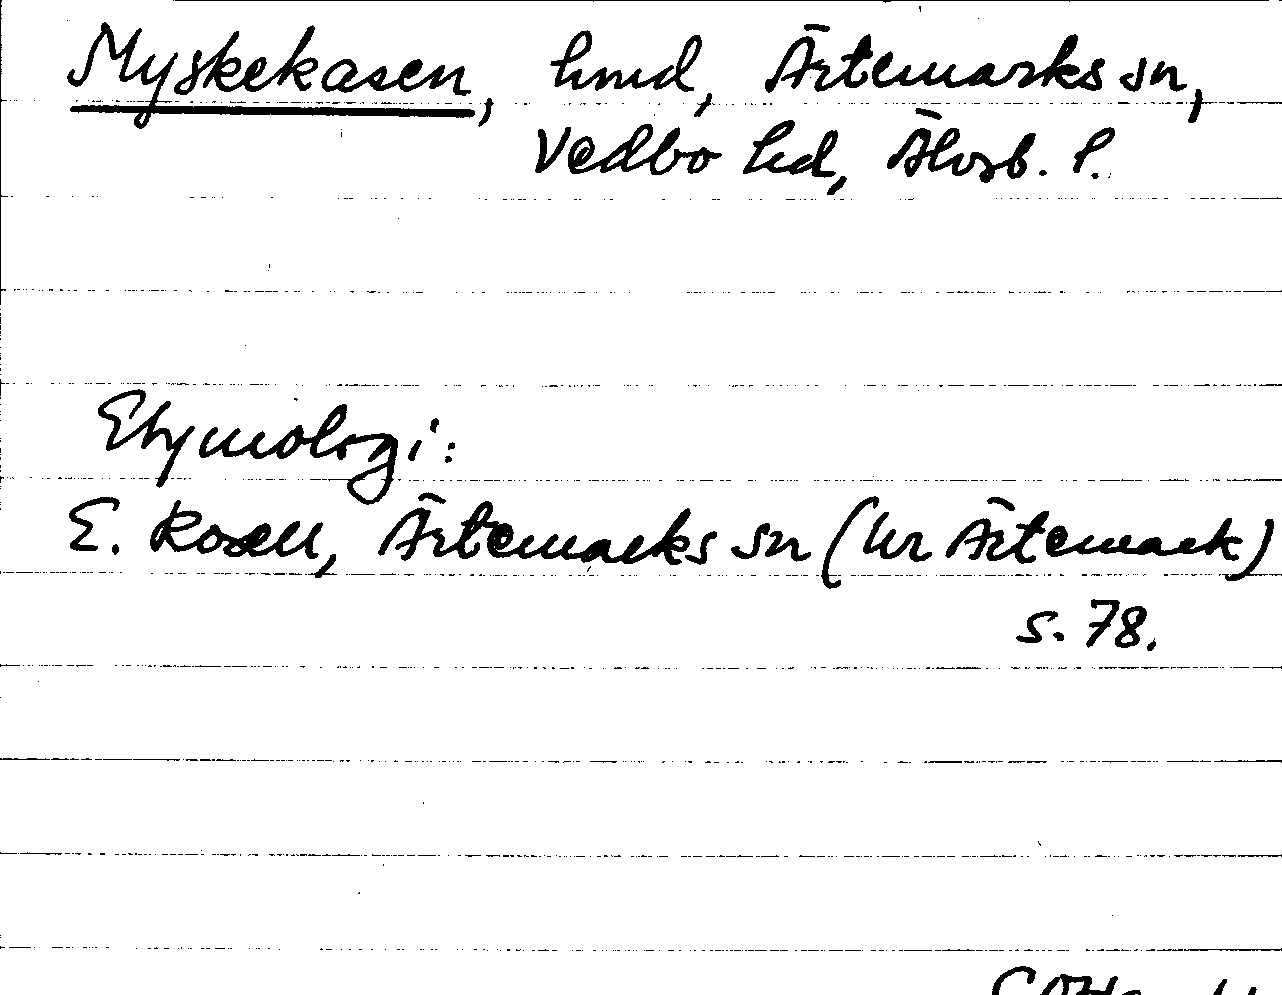 Myskekasen, hmd, Ärtemarks sn,
Vedbo hd, Älvsb. l.
Etymologi:
E. Rosell, Ärtemarks sn (hr Ärtemark)
s. 78.